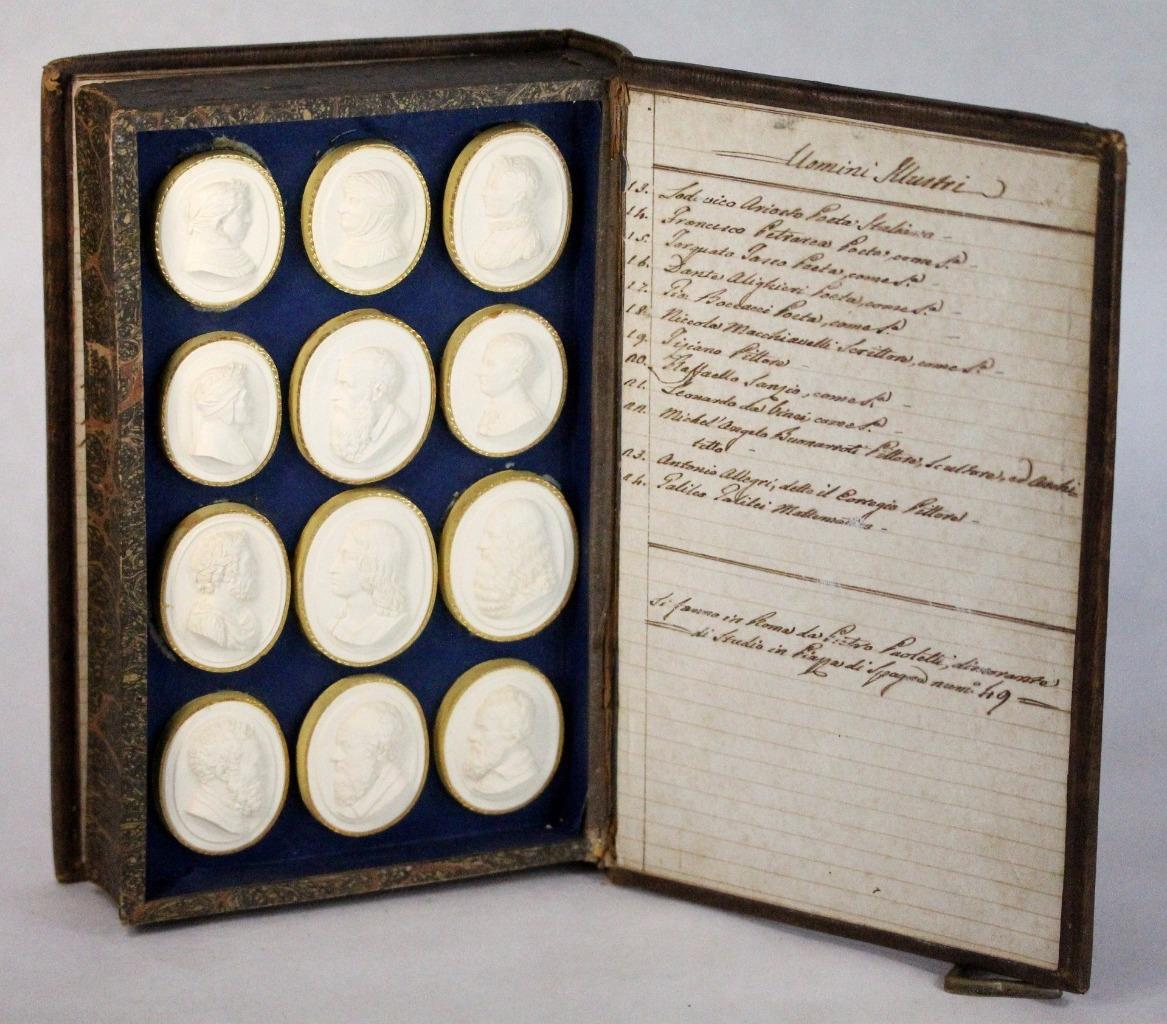 Uomini Illustri
13. Lodovico Ariosto Poeta Italiano
14. Francesco Petrarca Poeta, come Sa.
15. Torquato Tasso Poeta, come Sa.
16. Dante Alighieri Poeta come Sa.
17. Gio: Boccacci Poeta, come Sa.
18. Niccola Macchiavelli Scrittore, come Sa.
19. Tiziano Pittore
20. Raffaello Sanzio, come Sa.
21. Leonardo da Vinci come Sa.
22. Michel'Angelo Buonarroti Pittore, Scultore, ed Archi
tetto
23. Antonio Allegri, detto il Corregio Pittore
24. Galileo Galilei Matematico
Si fanno in Roma da Pietro Paoletti, dimorante
di Studio in Piazza di Spagna num.o 49